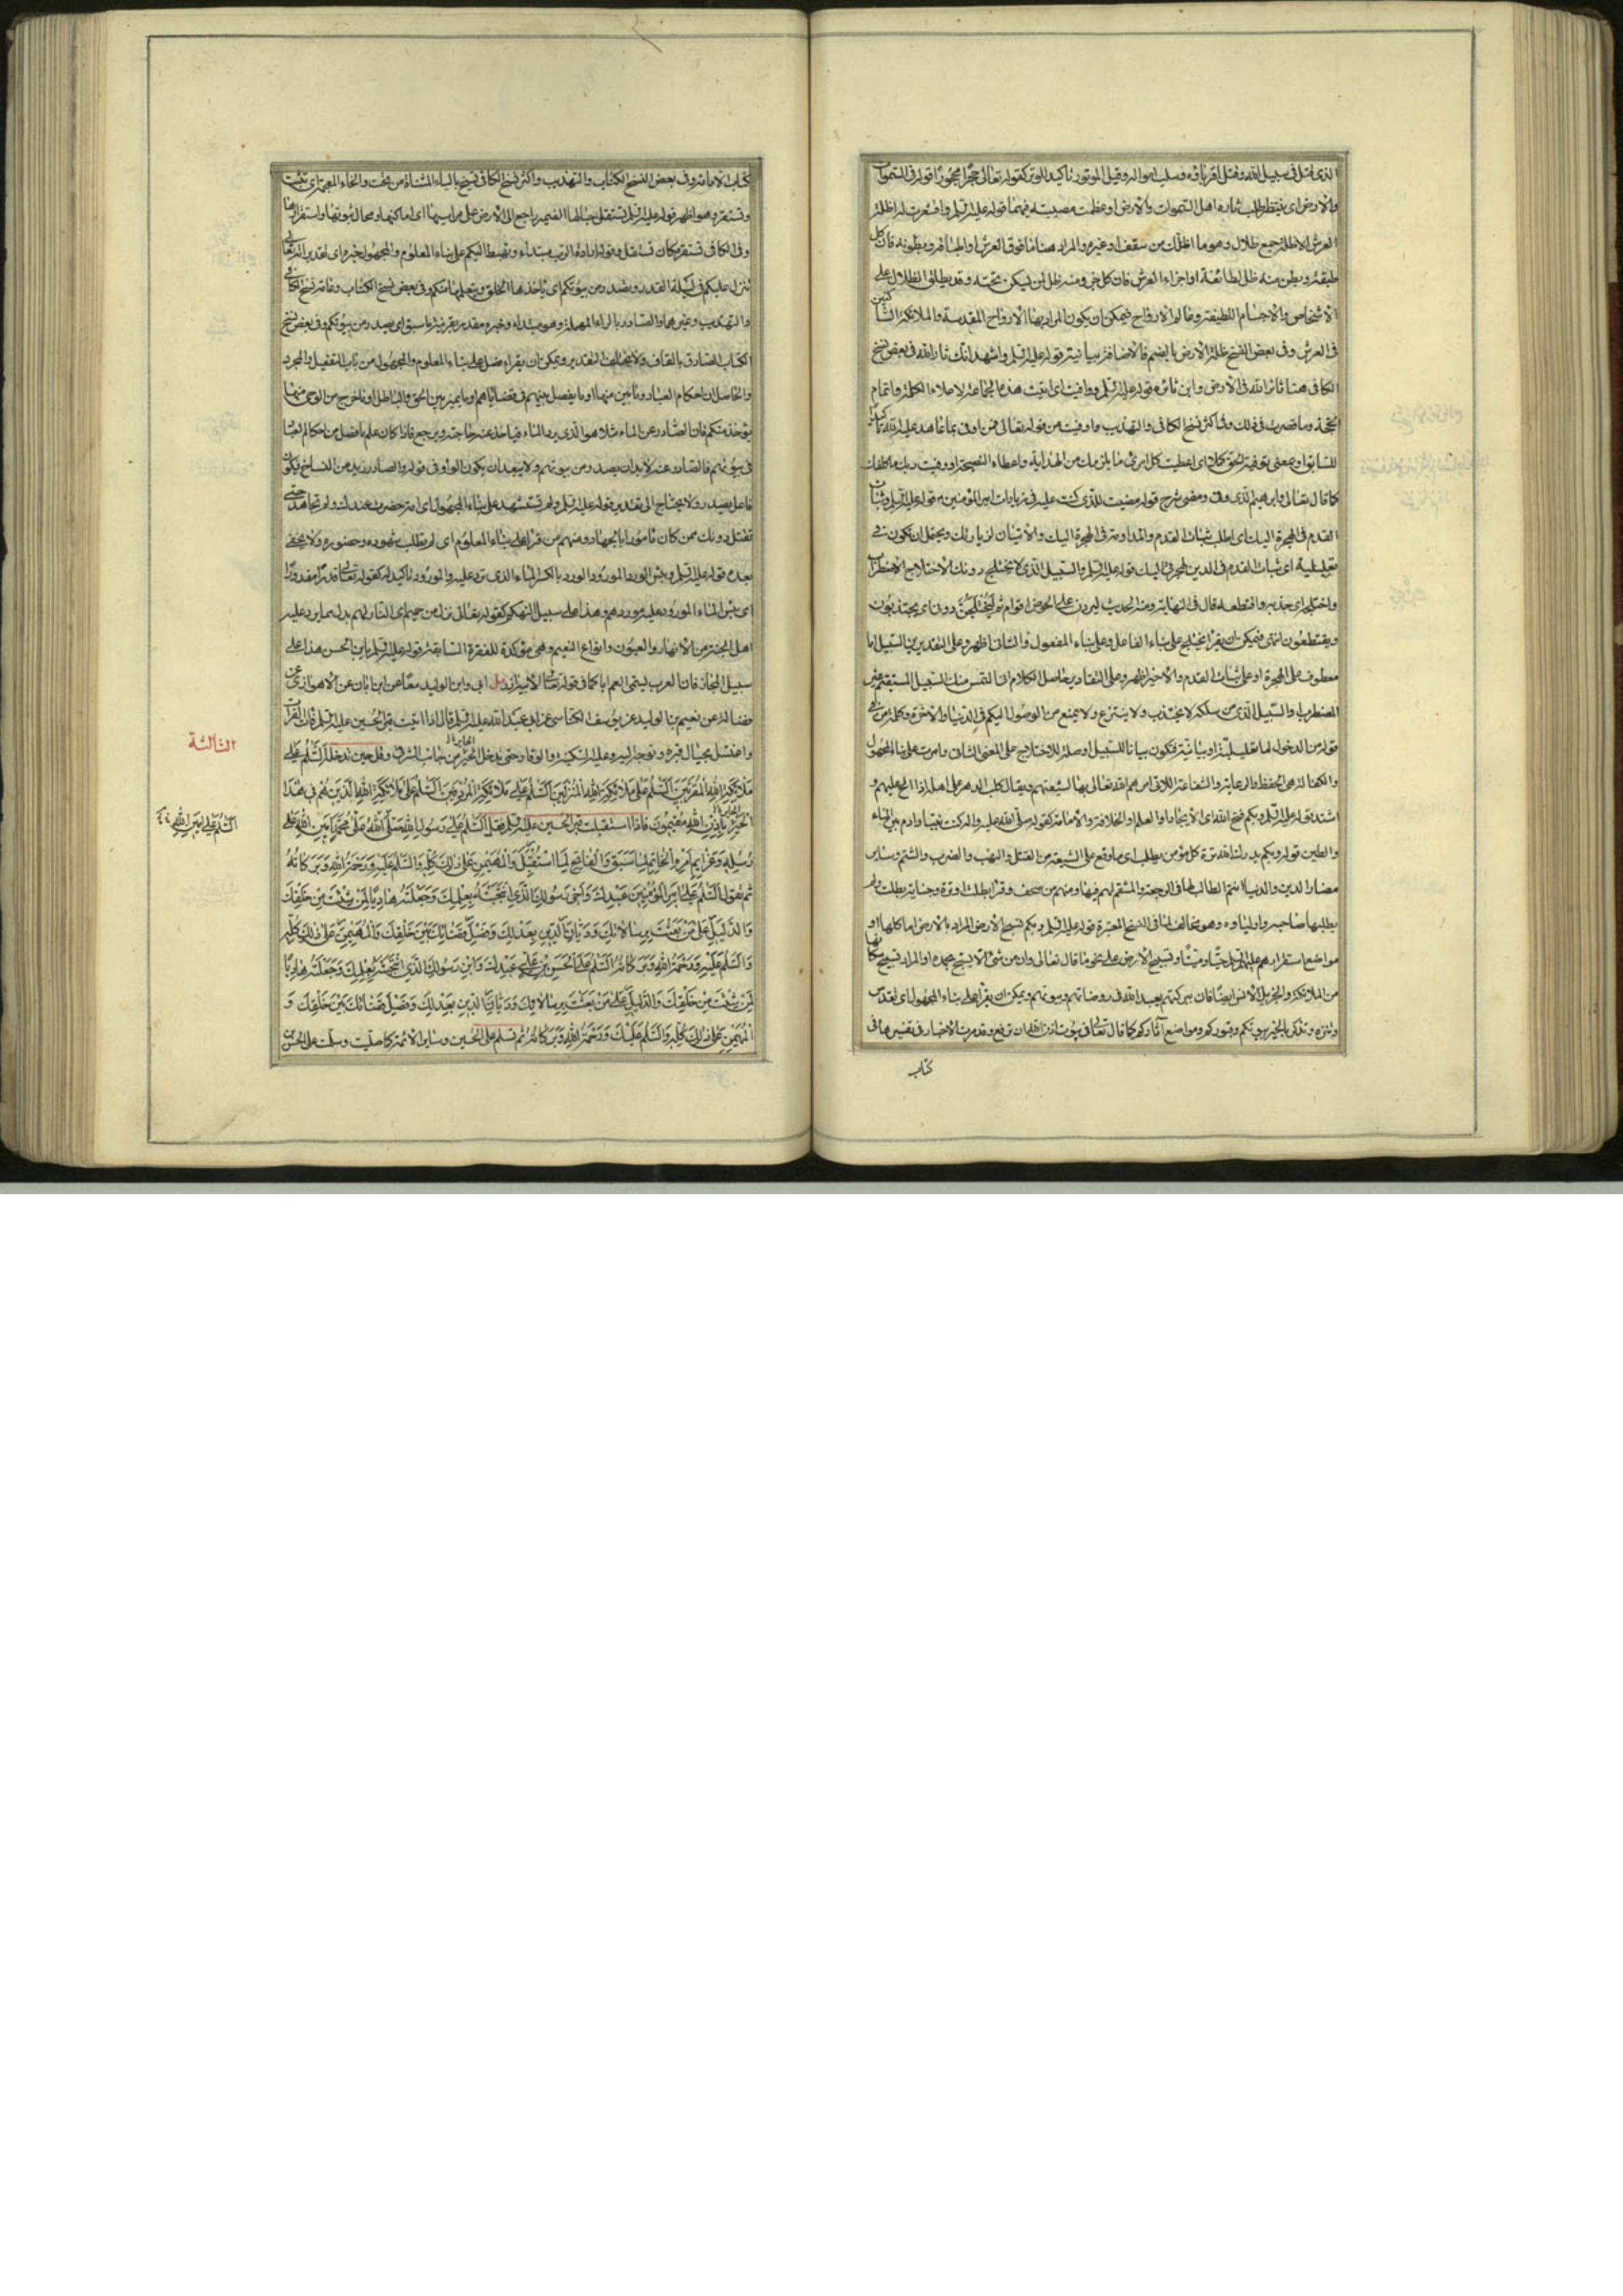 الذي قتل في سبيل الله وقتل اقرباؤه وسلب امواله وقيل الموتور تاكيد للوتر كقوله تعالى حجرا محجورا قوله في السموات
والارض اى ينتظر طلب ثاره اهل السموات والارض او عظمت مصيبته فيهما قوله عليه السلم واقشعرت له اظلة
العرش الاظلة جمع ظلال وهو ما اظلك من سقف او غيره والمراد هنا ما فوق العرش او اطباقه وبطونه فان كل
طبقة وبطن منه ظل لطائفة او اجزاء العرش فان كل جزء منه ظل لمن يسكن تحته وقد يطلق الظلال على
الاشخاص والاجسام اللطيفة وعالم الارواح فيمكن ان يكون المراد بها الارواح المقدسة والملائكة الساكنين
في العرش وفي بعض النسخ ظلة الارض بالضم فالاضافة بيانية قوله عليه السلم واشهد انك ثار الله في بعض نسخ
الكافي هنا ثائر الله في الارض وابن ثائره قوله عليه السلم ووافيت اى اتيت هذه الجماعة لاعلاء الكلمة واتمام
الحجة وما قصرت في ذلك وفي اكثر نسخ الكافي والتهذيب واوفيت من قوله تعالى فمن اوفى بما عاهد عليه الله تاكيدا
للسابق او بمعنى توفية الحق كملا اى اعطيت كل امرئ ما يلزمك من الهداية واعطاء النصيحة او وفيت ربك ما كلفك
كما قال تعالى وابرهيم الذي وفى ومضى شرح قوله مضيت للذي كنت عليه في زيارات امير المؤمنين قوله عليه السلم وثبات
القدم في الهجرة اليك اى اطلب ثبات القدم والمداومة في الهجرة اليك والاتيان لزيارتك ويحتمل ان تكون في
تعليلية اى ثبات القدم في الدين لهجرتي اليك قوله عليه السلم والسبيل الذي لا يختلج دونك الاختلاج الاضطراب
واختلجه اى جذبه واقتطعه قال في النهاية ومنه الحديث ليردن على الحوض اقوام ثم ليختلجن دوني اى يجتذبون
ويقتطعون انتهى فيمكن ان يقرا يختلج على بناء الفاعل وعلى بناء المفعول والثاني اظهر وعلى التقديرين السبيل اما
معطوف على الهجرة او على ثبات القدم والاخير اظهر وعلى التقادير حاصل الكلام اني التمس منك السبيل المستقيم غير
المضطرب او السبيل الذي من سلكه لا يجتذب ولا ينتزع ولا يمنع من الوصول اليكم في الدنيا والاخرة وكلمة من في
قوله من الدخول اما تعليلية او بيانية فتكون بيانا للسبيل او صلة للاختلاج على المعنى الثاني وامرت على بناء المجهول
والكفالة هي الحفظ والرعاية والشفاعة اللاتي امرهم الله تعالى بها لشيعتهم ويقال كلب الدهر على اهله اذا الح عليهم و
اشتد قوله عليه السلم وبكم فتح الله اى الايجاد او العلم والخلافة والامامة كقوله صلى الله عليه واله كنت نبيا وادم بين الماء
والطين قوله وبكم يدرك الله ترة كل مؤمن يطلب اى ما وقع على الشيعة من القتل والنهب والضرب والشتم وساير
مضار الدين والدنيا انتم الطالب لها في الرجعة والمنتقم لهم فيها ومنهم من صحف وقرا يطلب او قوة وجناية يطلب ولم
يطلبها صاحبه واولياؤه وهو مخالف لما في النسخ المعتبرة قوله عليه السلم وبكم تسبح الارض المراد بالارض اما كلها او
مواضع استقرارهم عليهم السلم حيا وميتا وتسبيح الارض على نحو ما قال تعالى وان من شئ الا يسبح بحمده او المراد تسبيح سكانها
من الملائكة والجن بل الانس ايضا فان ببركتهم يعبد الله في روضاتهم وبيوتهم ويمكن ان يقرا على بناء المجهول اى تقدس
وتنزه وتذكر بالخير بيوتكم وقبوركم ومواضع آثاركم كما قال تعالى في بيوت اذن الله ان ترفع وقد مرت الاخبار في تفسيرها في
كتاب
كتاب الامامة وفي بعض النسخ الكتاب والتهذيب واكثر نسخ الكافي تسيخ بالياء المثناة من تحت والخاء المعجمة اى تثبت
وتستقر وهو اظهر قوله عليه السلم تستقل جبالها الضمير راجع الى الارض على مراسيها اى اماكنها ومحال ثبوتها واستقرارها
وفي الكافي تستقر مكان تستقل وقوله ارادة الرب مبتداء وتهبط اليكم على بناء المعلوم والمجهول خبره اى تقديراته تعالى
تنزل عليكم في ليلة القدر وتصدر من بيوتكم اى ياخذها الخلق ويتعلمها منكم وفي بعض نسخ الكتاب وعامة نسخ الكافي
والتهذيب وغيرهما والصادر بالراء المهملة وهو مبتداء وخبره مقدر بقرينة ما سبق اى يصدر من بيوتكم وفي بعض نسخ
الكتاب الصادق بالقاف ولا يختلف التقدير ويمكن ان يقراء فصل على بناء المعلوم والمجهول من باب التفعيل والمجرد
والحاصل ان احكام العباد وما بين منها او ما يفصل بينهم في قضاياهم وما يميز بين الحق والباطل او ما خرج من الوحى منها
يؤخذ منكم فان الصادر عن الماء مثلا هو الذي يرد الماء فياخذ عنه حاجته ويرجع فاذا كان علم ما فصل من احكام العباد
في بيوتهم فالصادر عنه لابد ان يصدر من بيوتهم ولا يبعد ان يكون الواو في قوله والصادر زيد من النساخ فيكون
فاعل يصدر ولا يحتاج الى تقدير قوله عليه السلم ولم تستشهد على بناء المجهول اى امة حضرت عندك ولم تجاهد حتى
تقتل دونك ممن كان مامورا بالجهاد ومنهم من قرا على بناء المعلوم اى لم يطلب شهوده وحضوره ولا يخفى
بعده قوله عليه السلم وبئس الورد المورود الورد بالكسر الماء الذي ترد عليه والمورود تاكيد له كقوله تعالى قدرا مقدورا
اى بئس الماء المورود عليه موردهم وهذا على سبيل التهكم كقوله تعالى نزل من حميم اى النار لهم بدل مما يرد عليه
اهل الجنة من الانهار والعيون وانواع النعيم وهي مؤكدة للفقرة السابقة قوله عليه السلم يا بن الحسن هذا على
سبيل المجاز فان العرب يسمى العم ابا كما في قوله تعالى لابيه ازر مل ابى وابن الوليد معا عن ابن ابان عن الاهوازي عن
فضالة عن نعيم بن الوليد عن يوسف الكناسي عن ابى عبد الله عليه السلم قال اذا اتيت قبر الحسين عليه السلم فات الفرات
واغتسل بحيال قبره وتوجه اليه وعليك السكينة والوقار حتى تدخل الحير من جانب الشرقى وقل حين تدخله السلم على
الثالثة
ملائكة الله المقربين السلم على ملائكة الله المنزلين السلم على ملائكة الله المردفين السلم على ملائكة الله الذين هم في هذا
الحير باذن الله مقيمون فاذا استقبلت قبر الحسين عليه السلم فقل السلم على رسول الله صلى الله على محمد امين الله على
السلم على امين الله
رسله وعزايم امره الخاتم لما سبق والفاتح لما استقبل والمهيمن على ذلك كله والسلم عليه ورحمة الله وبركاته
ثم تقول السلم على امير المؤمنين عبدك واخى رسولك الذي انتجبته بعلمك وجعلته هاديا لمن شئت من خلقك
والدليل على من بعثت برسالاتك وديان الدين بعدلك وفصل قضائك بين خلقك والمهيمن على ذلك كله
والسلم عليه ورحمة الله وبركاته السلم على الحسن بن علي عبدك وابن رسولك الذي انتجبته بعلمك وجعلته هاديا
لمن شئت من خلقك والدليل على من بعثت برسالاتك وديان الدين بعدلك وفصل قضائك بين خلقك و
المهيمن على ذلك كله والسلم عليك ورحمة الله وبركاته ثم تسلم على الحسين وساير الائمة كما صليت وسلمت على الحسن